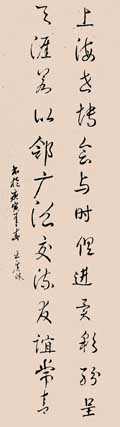 上海世博会与时俱进异彩纷呈
天涯若比邻广泛交流友谊常青
书於庚寅年春